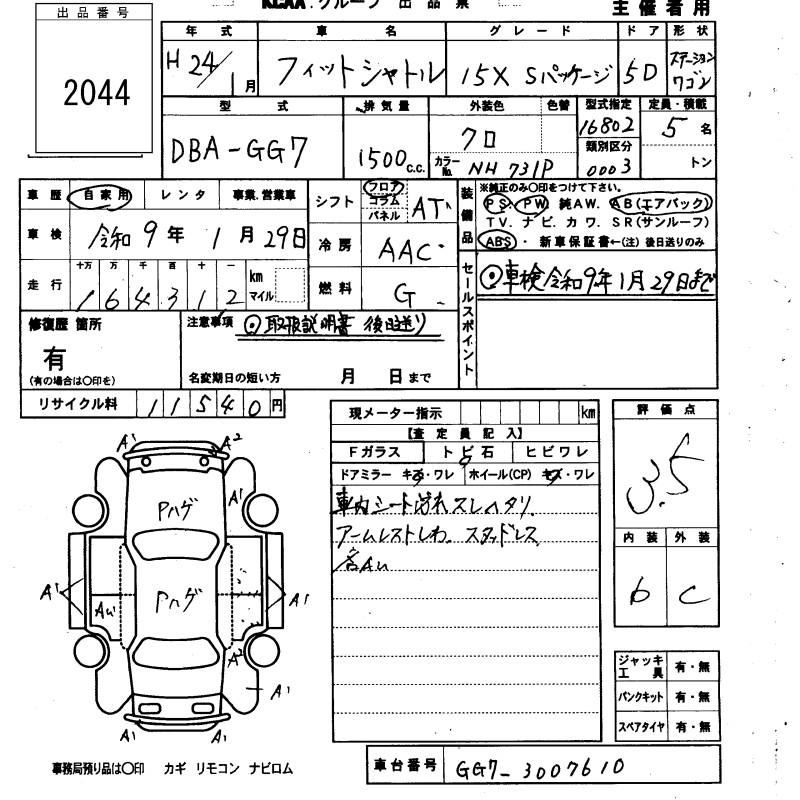 KCAA.グループ 出品票
主催者用
出品番号
2044
年式 車名 グレード ドア 形状
H 24/1月 フィットシャトル 15X Sパッケージ 5D ステーションワゴン
型式 排気量 外装色 色替 型式指定 定員・積載
DBA-GG7 1500c.c. クロ 16802 5名
カラーNo. NH 731P 類別区分 0003 トン
車歴 自家用 レンタ 事業.営業車
シフト フロア コラム パネル AT
装備品 ※純正のみ○印をつけて下さい。
PS・PW 純AW. AB(エアバック)
TV. ナビ. カワ. SR(サンルーフ)
ABS・ 新車保証書←(注) 後日送りのみ
車検 令和9年1月29日
冷房 AAC
走行 十万 万 千 百 十 一
164312 km マイル
燃料 G
セールスポイント
◎車検令和9年1月29日まで
修復歴 箇所
有
(有の場合は○印を)
注意事項 ◎取扱説明書 後日送り
名変期日の短い方 月 日まで
リサイクル料 11540円
現メーター指示 km
【査定員記入】
Fガラス トビ石 ヒビワレ
ドアミラー キズ・ワレ ホイール(CP) キズ・ワレ
車内シート汚れスレヘタリ
アームレストしわ. スタッドレス
各AU
評価点
3.5
内装 外装
b C
A1 A2
Pハゲ
A1
A1 AU Pハゲ A1
A2
A1
A1 A1
ジャッキ工具 有・無
パンクキット 有・無
スペアタイヤ 有・無
事務局預り品は○印 カギ リモコン ナビロム
車台番号 GG7-3007610